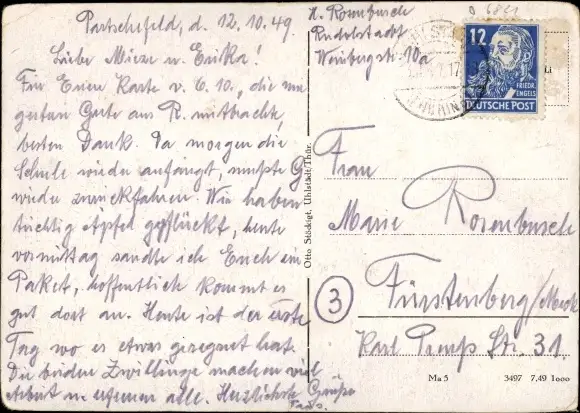 Partschefeld, d. 12.10.49.
Liebe Mieze u. Erika!
Für Eure Karte v. 6.10., die
gestern Gute aus R. mitbrachte,
besten Dank. Da morgen die
Schule wieder anfängt, mußte G
wieder zurückfahren. Wir haben
tüchtig Äpfel gepflückt, heute
vormittag sandte ich Euch ein
Paket, hoffentlich kommt es
gut dort an. Heute ist der erste
Tag wo es etwas geregnet hat.
Die beiden Zwillinge machen viel
Arbeit u. alle. Herzlichste Grüße
H. Rosenbusch
Rudolstadt
Weinbergstr. 10a
12
FRIEDR. ENGELS
DEUTSCHE POST
Otto Stöckigt, Uhlstädt/Thür.
Frau
Marie Rosenbusch
3
Fürstenberg/Meckl
Karl Str. 31
Ma 5 3497 7,49 1000